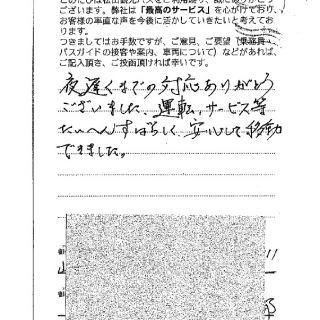 ございます。弊社は「最高のサービス」を心がけており、
お客様の率直な声を今後に活かしていきたいと考えてお
ります。
つきましてはお手数ですが、ご意見、ご要望（乗務員・
バスガイドの接客や案内、車両について）などがあれば、
ご記入頂き、ご投函頂ければ幸いです。
夜遅くまでの対応ありがとう
ございました。運転、サービス等
たいへんすばらしく、安心して移動
できました。